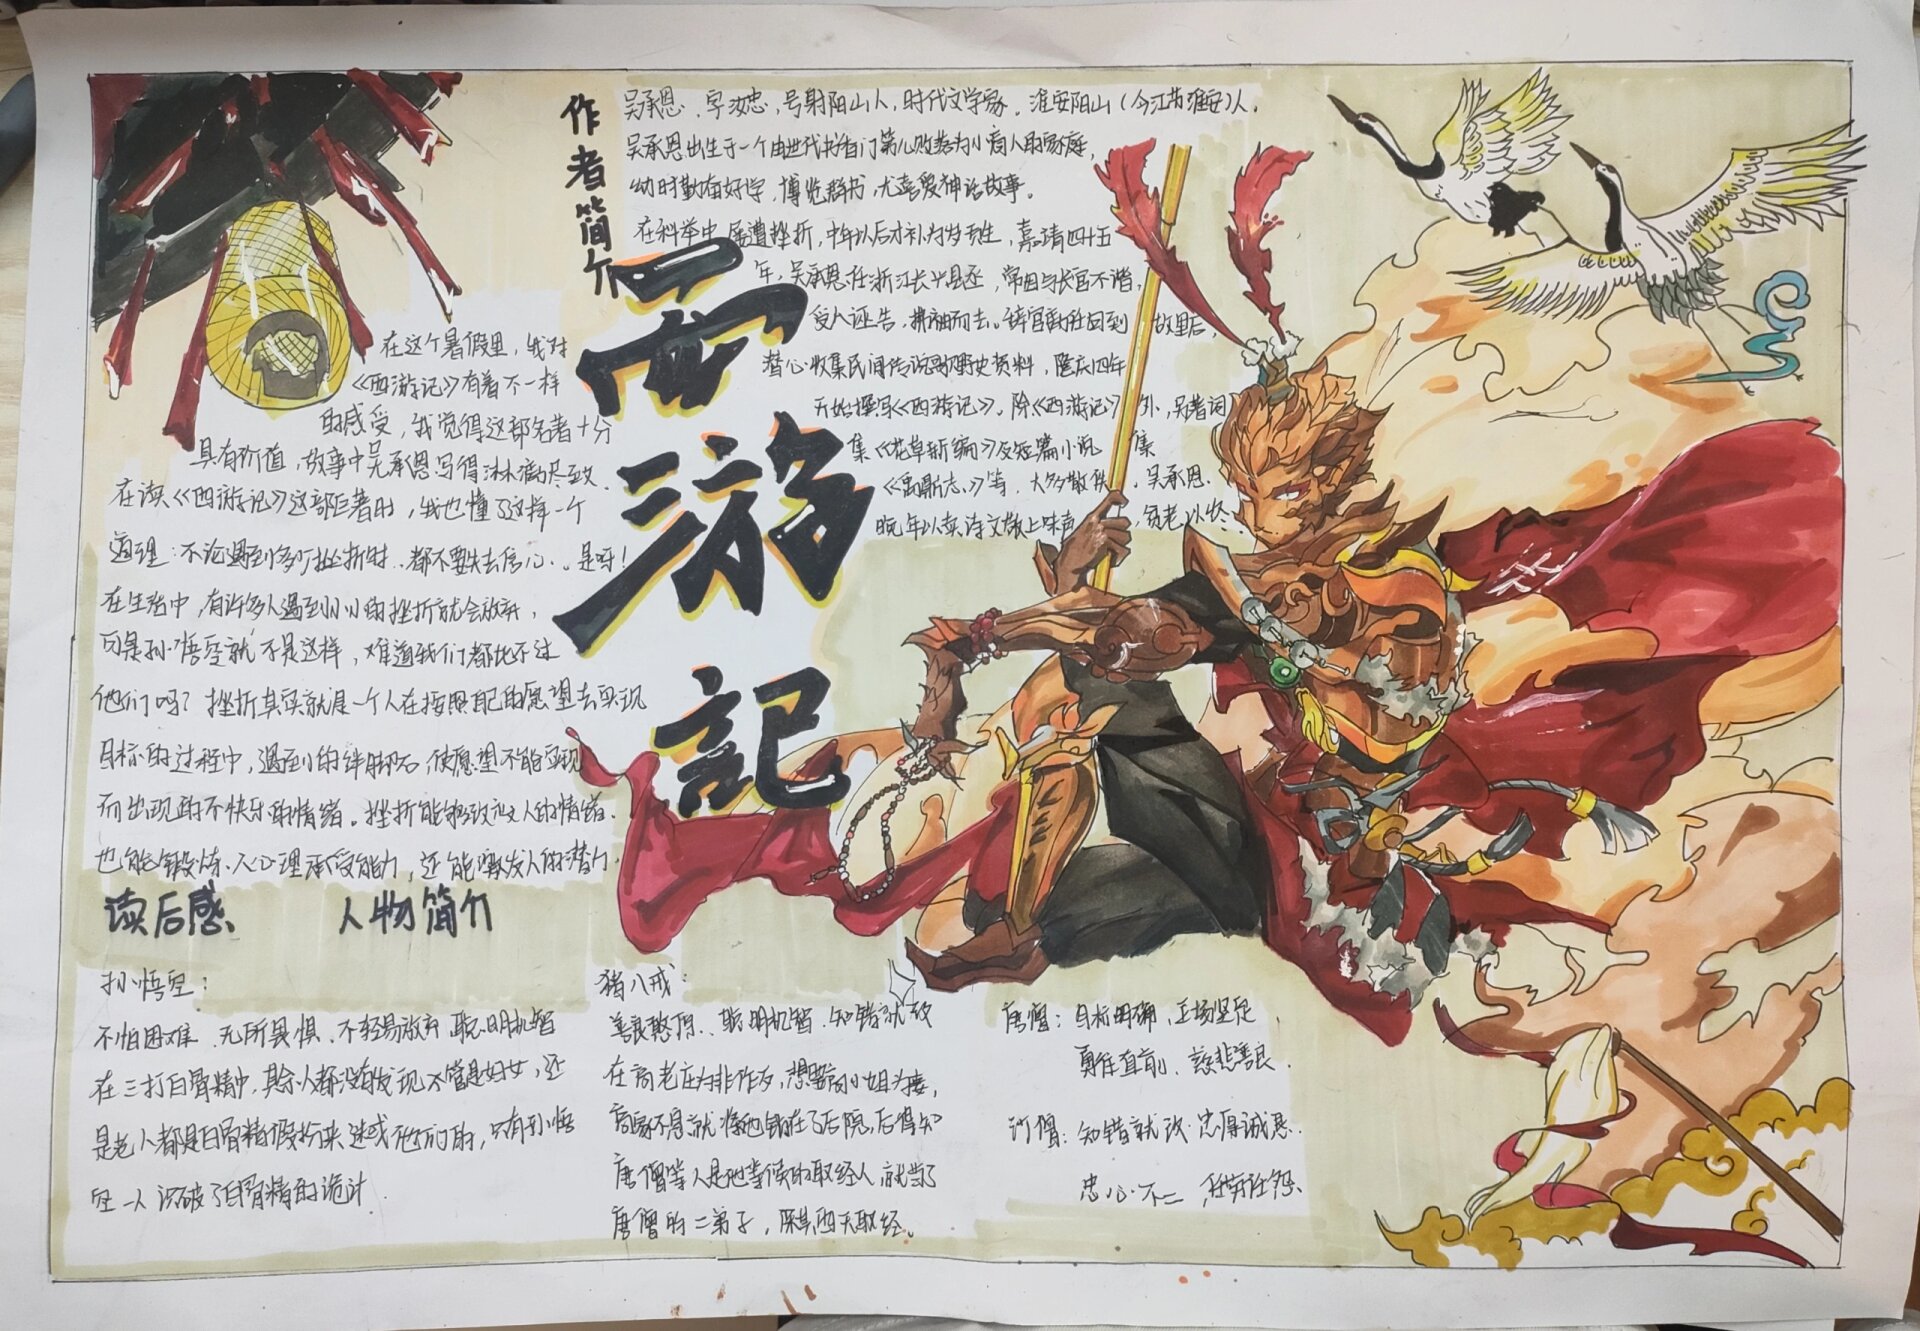 西游记
作者简介
吴承恩、字汝忠，号射阳山人，时代文学家。淮安阳山（今江苏淮安）人。
吴承恩出生于一个由世代书香门第儿败落为小商人的家庭，
幼时勤奋好学，博览群书，尤喜爱神话故事。
在科举中屡遭挫折，中年以后才补为岁贡生，嘉靖四十五
年，吴承恩任浙江长兴县丞，常因与长官不谐，
受人诬告，拂袖而去。辞官 回到故里后，
潜心收集民间传说和野史资料，隆庆四年
开始撰写《西游记》。除《西游记》外，吴著词
集《花草新编》及短篇小说集
《禹鼎志》等，大多散佚。吴承恩
晚年以卖诗文 ，贫老以终
在这个暑假里，我对
《西游记》有着不一样
的感受，我觉得这部名著十分
具有价值，故事中吴承恩写得淋漓尽致.
在读《西游记》这部巨著时，我也懂了这样一个
道理：不论遇到多少挫折时，都不要失去信心.。是呀！
在生活中，有许多人遇到小小的挫折就会放弃，
可是孙悟空就不是这样，难道我们都比不过
他们吗？挫折其实就是一个人在按照自己的愿望去实现
目标的过程中，遇到的绊脚石，使愿望不能实现
而出现的不快乐的情绪。挫折能够改变人的情绪.
也能锻炼人心理承受能力，还能激发人的潜力.
读后感
人物简介
孙悟空：
不怕困难、无所畏惧、不轻易放弃 聪明机智
在三打白骨精中，其余人都没有发现不管是妇女，还
是老人都是白骨精假扮来迷惑他们的，只有孙悟
空一人识破了白骨精的诡计.
猪八戒：
善良憨厚、聪明机智、知错就改
在高老庄为非作歹，想要高小姐为妻，
高家不得就将他锁在了后院，后得知
唐僧等人是他等候的取经人，就当了
唐僧的二弟子，陪其西天取经。
唐僧：目标明确，立场坚定，
勇往直前、慈悲善良.
沙僧：知错就改 忠厚诚恳.
忠心不二，任劳任怨、